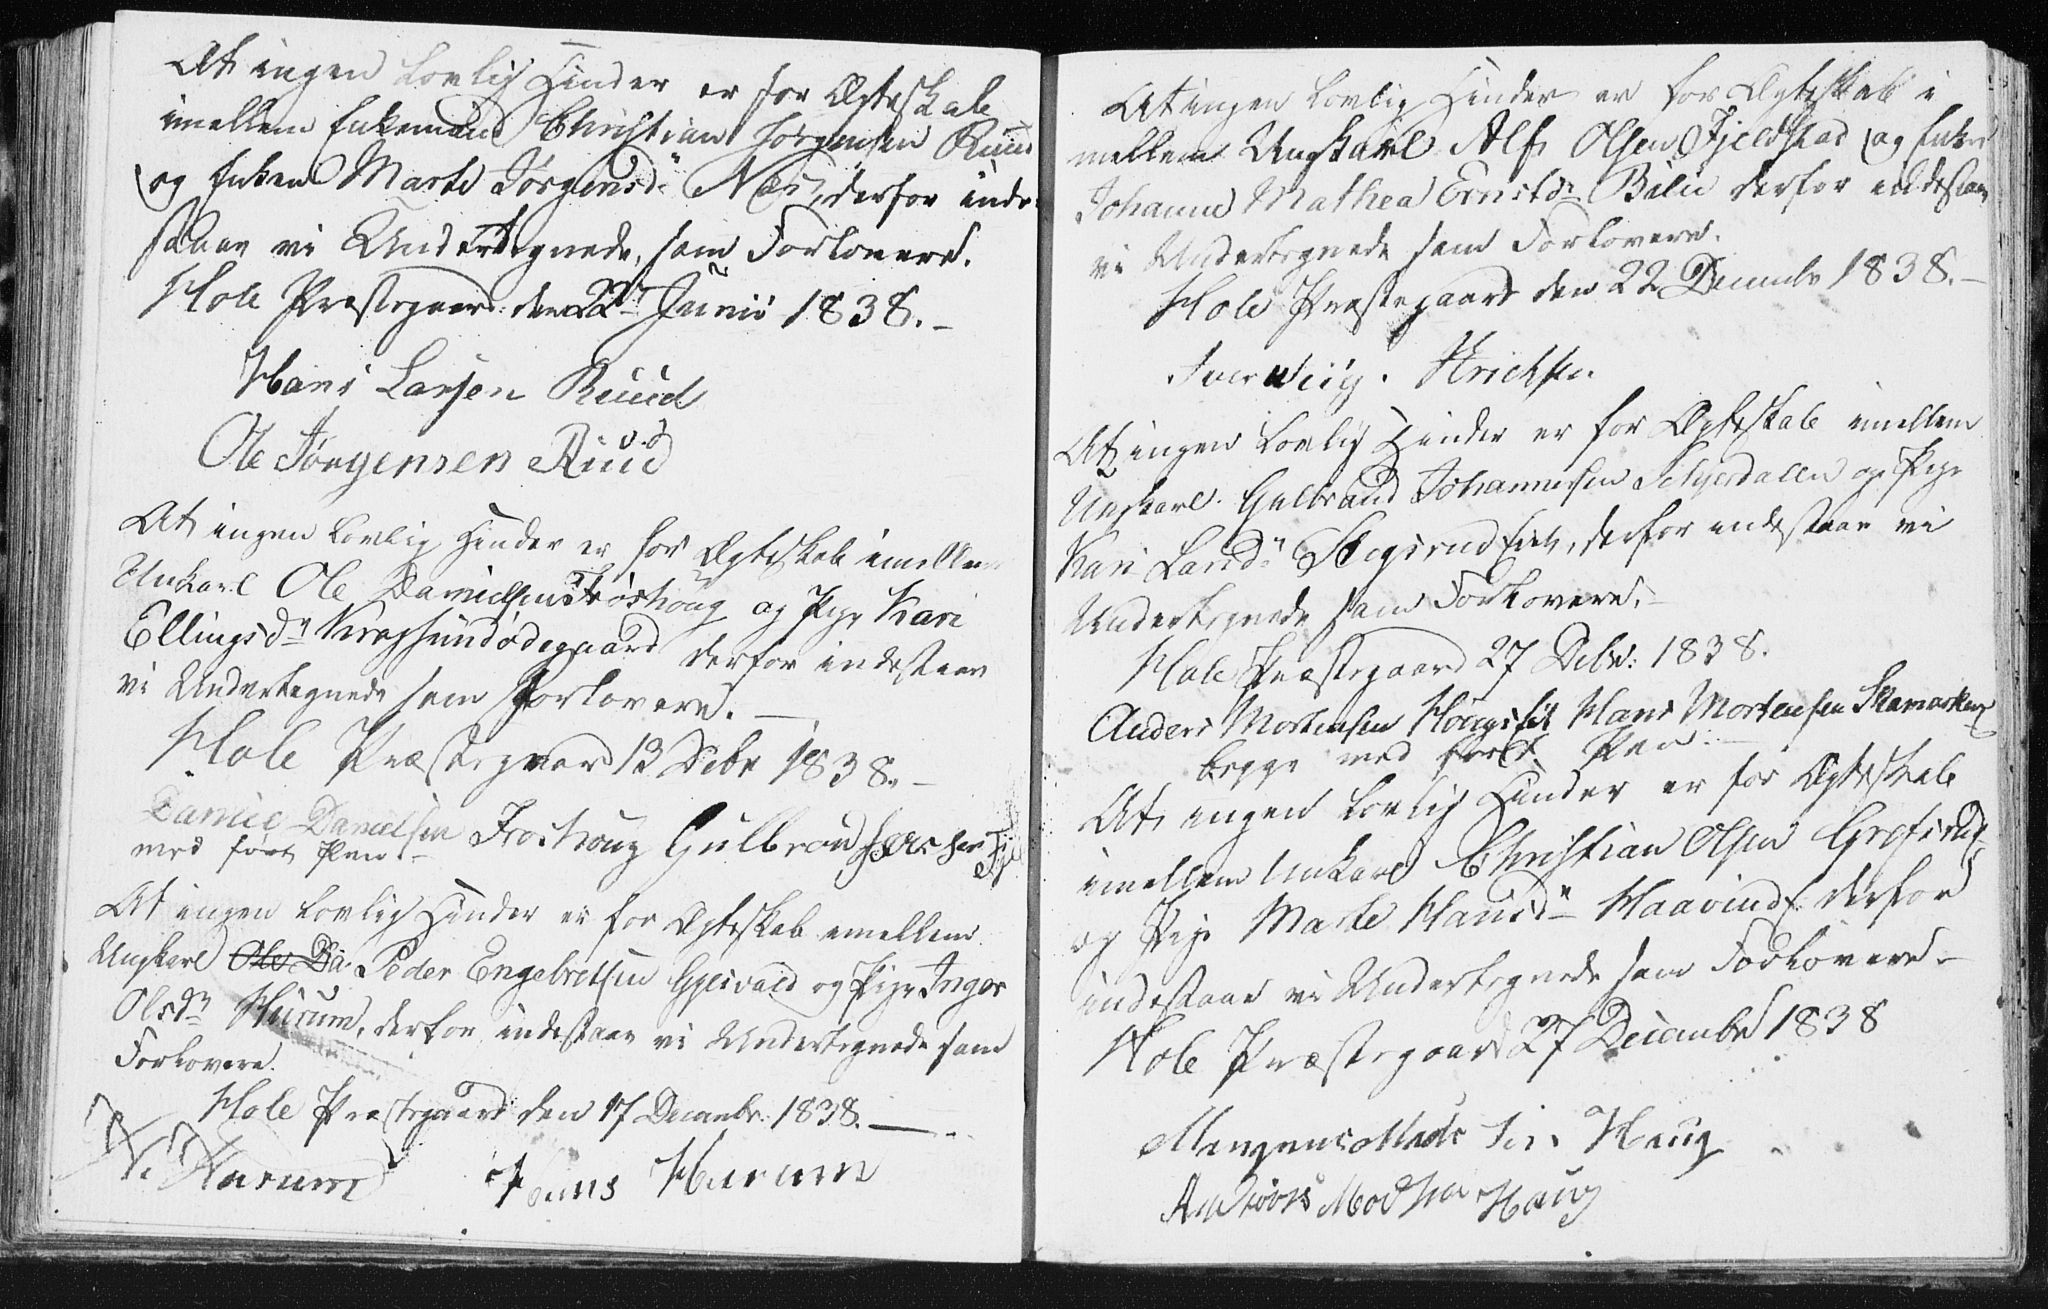 At ingen lovlig Hinder er for Ægteskab
imellem Enkemand Christian Jørgensen Ruud
og Enken Marte Jørgensd: Næs, derfor inde-
staae vi Undertegnede, som Forlovere.
Hole Præstegaard den 22de Junii 1838.-
Hans Larsen Ruud
Ole Jörgensen Ruud
At ingen lovlig Hinder er for Ægteskab imellem
Unkarl Ole Danielsen Frøshoug og Pige Kari
Ellingsdr Krogsundødegaard derfor indestaae
vi Undertegnede som Forlovere. -
Hole Præstegaard 13 Debr 1838.-
Daniel Danielsen Froshoug Gulbrand
med ført Pen.-
At ingen lovlig Hinder er for Ægteskab imellem
Ungkarl Ole Da Peder Engebretsen Gjesvald og Pige Inger
Olsdr Hurum, derfor indestaae vi Undertegnede som
Forlovere.
Hole Præstegaard den 17 Decembr: 1838.-
Hurum Hans Hurum
At ingen lovlig Hinder er for Ægteskab i
mellem Ungkarl Alf Olsen Fjeldstad og Enken
Johanne Mathea Ernstdr Bili derfor indestaae
vi Undertegnede som Forlovere.
Hole Præstegaard den 22 Decembr 1838.-
Iver Wiig. Hrichsen
At ingen lovlig Hinder er for Ægteskab imellem
Ungkarl Gulbrand Johannesen Schjerdallen og Pige
Kari Larsd: Stegsrud, derfor indestaae vi
Undertegnede som Forlovere.-
Hole Præstegaard 27 Debr: 1838.
Anders Mortensen Hans Mortensen
begge med ført Pen.-
At ingen lovlig Hinder er for Ægteskab
imellem Unkarl Christian Olsen Grøfsrud
og Pige Marte Hansdr Haavind derfor
indestaae vi Undertegnede som Forlovere.-
Hole Præstegaard 27 Decembr 1838
Mads Haug
Haug